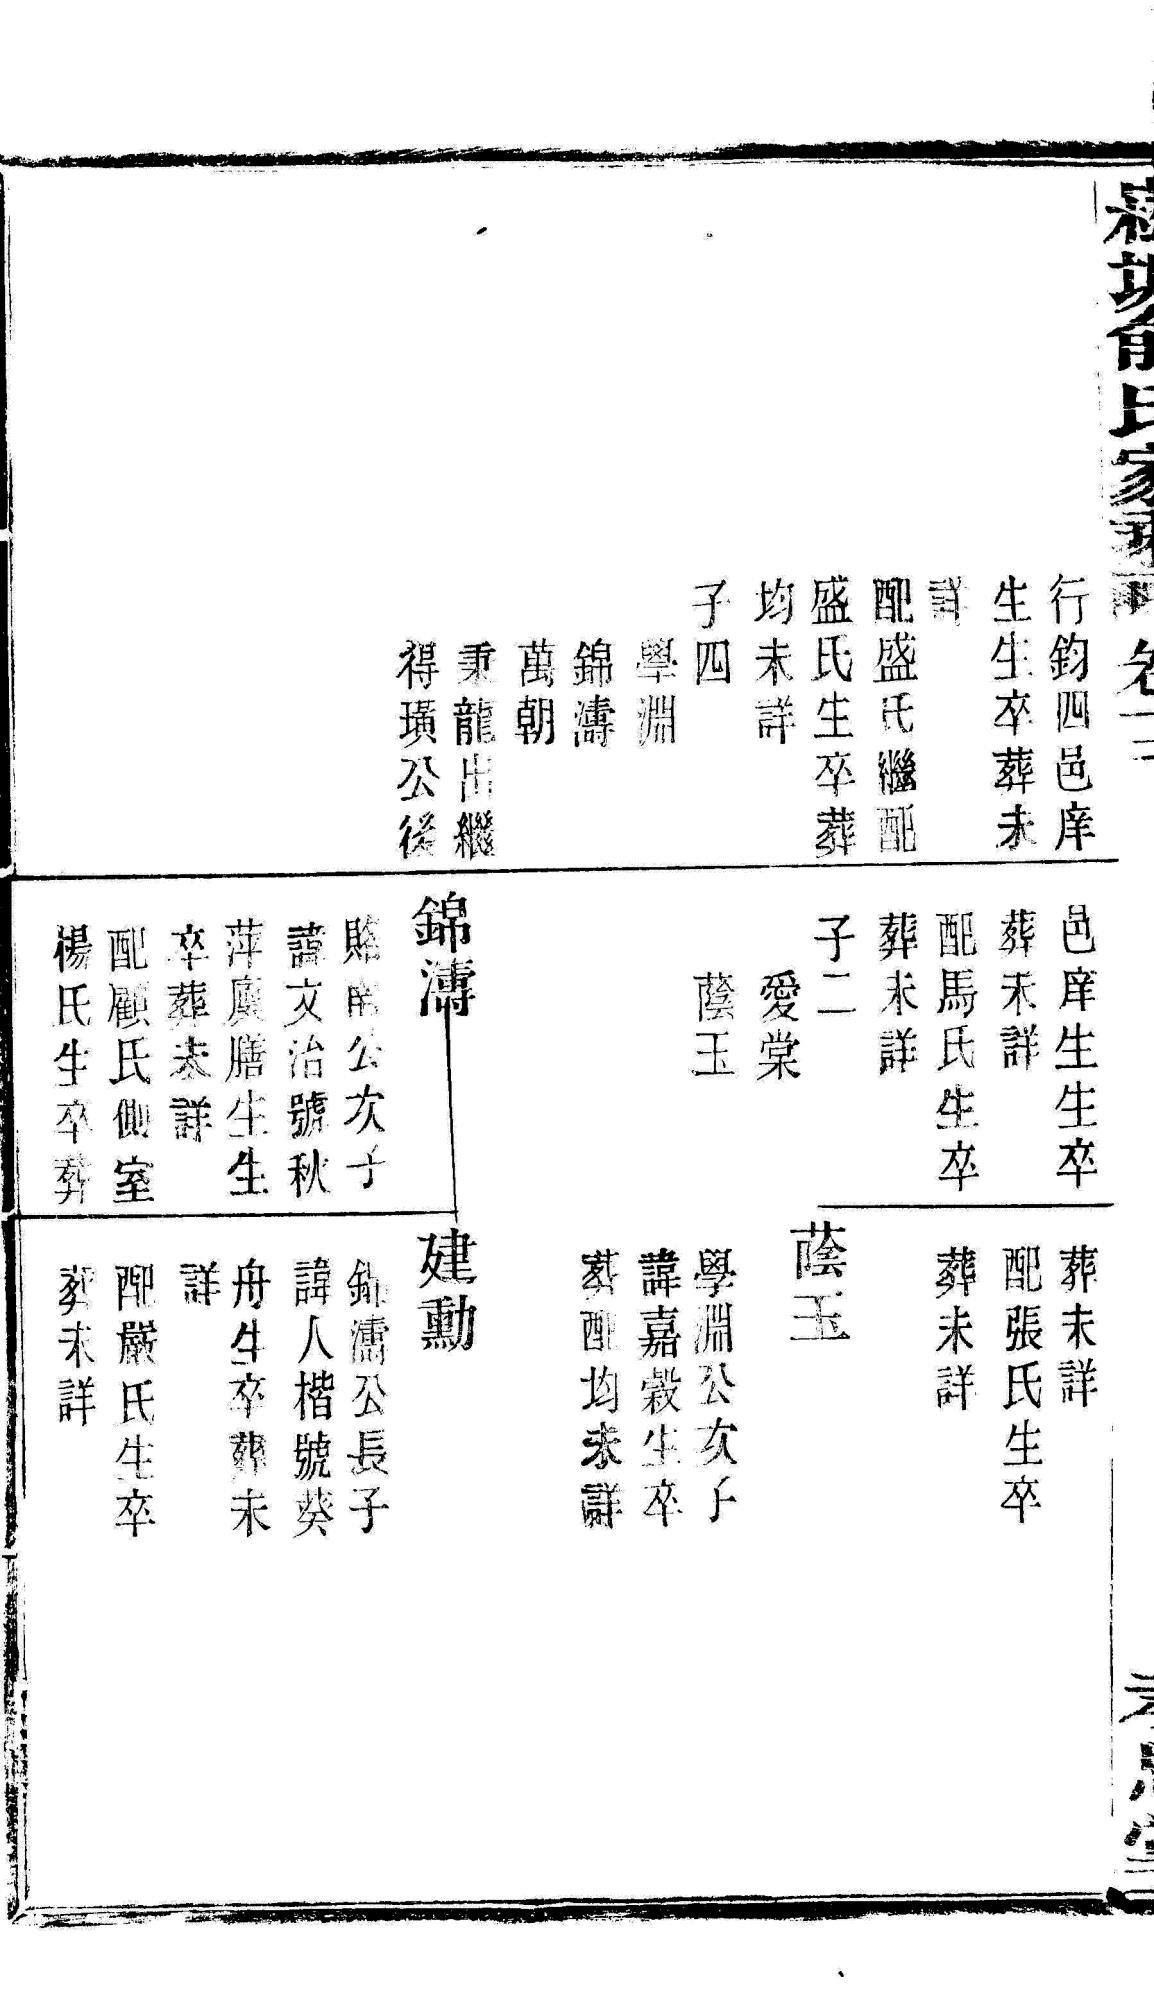 氏家乘
卷十二
行鈞四邑庠
生生卒葬未
詳
配盛氏繼配
盛氏生卒葬
均未詳
子四
學淵
錦濤
萬朝
秉龍出繼
得璜公後
邑庠生生卒
葬未詳
配馬氏生卒
葬未詳
子二
愛棠
蔭玉
錦濤
公次子
諱文治號秋
萍廩膳生生
卒葬未詳
配顧氏側室
楊氏生卒葬
葬未詳
配張氏生卒
葬未詳
蔭玉
學淵公次子
諱嘉穀生卒
葬配均未詳
建勳
錦濤公長子
諱人楷號葵
舟生卒葬未
詳
配嚴氏生卒
葬未詳
孝思堂